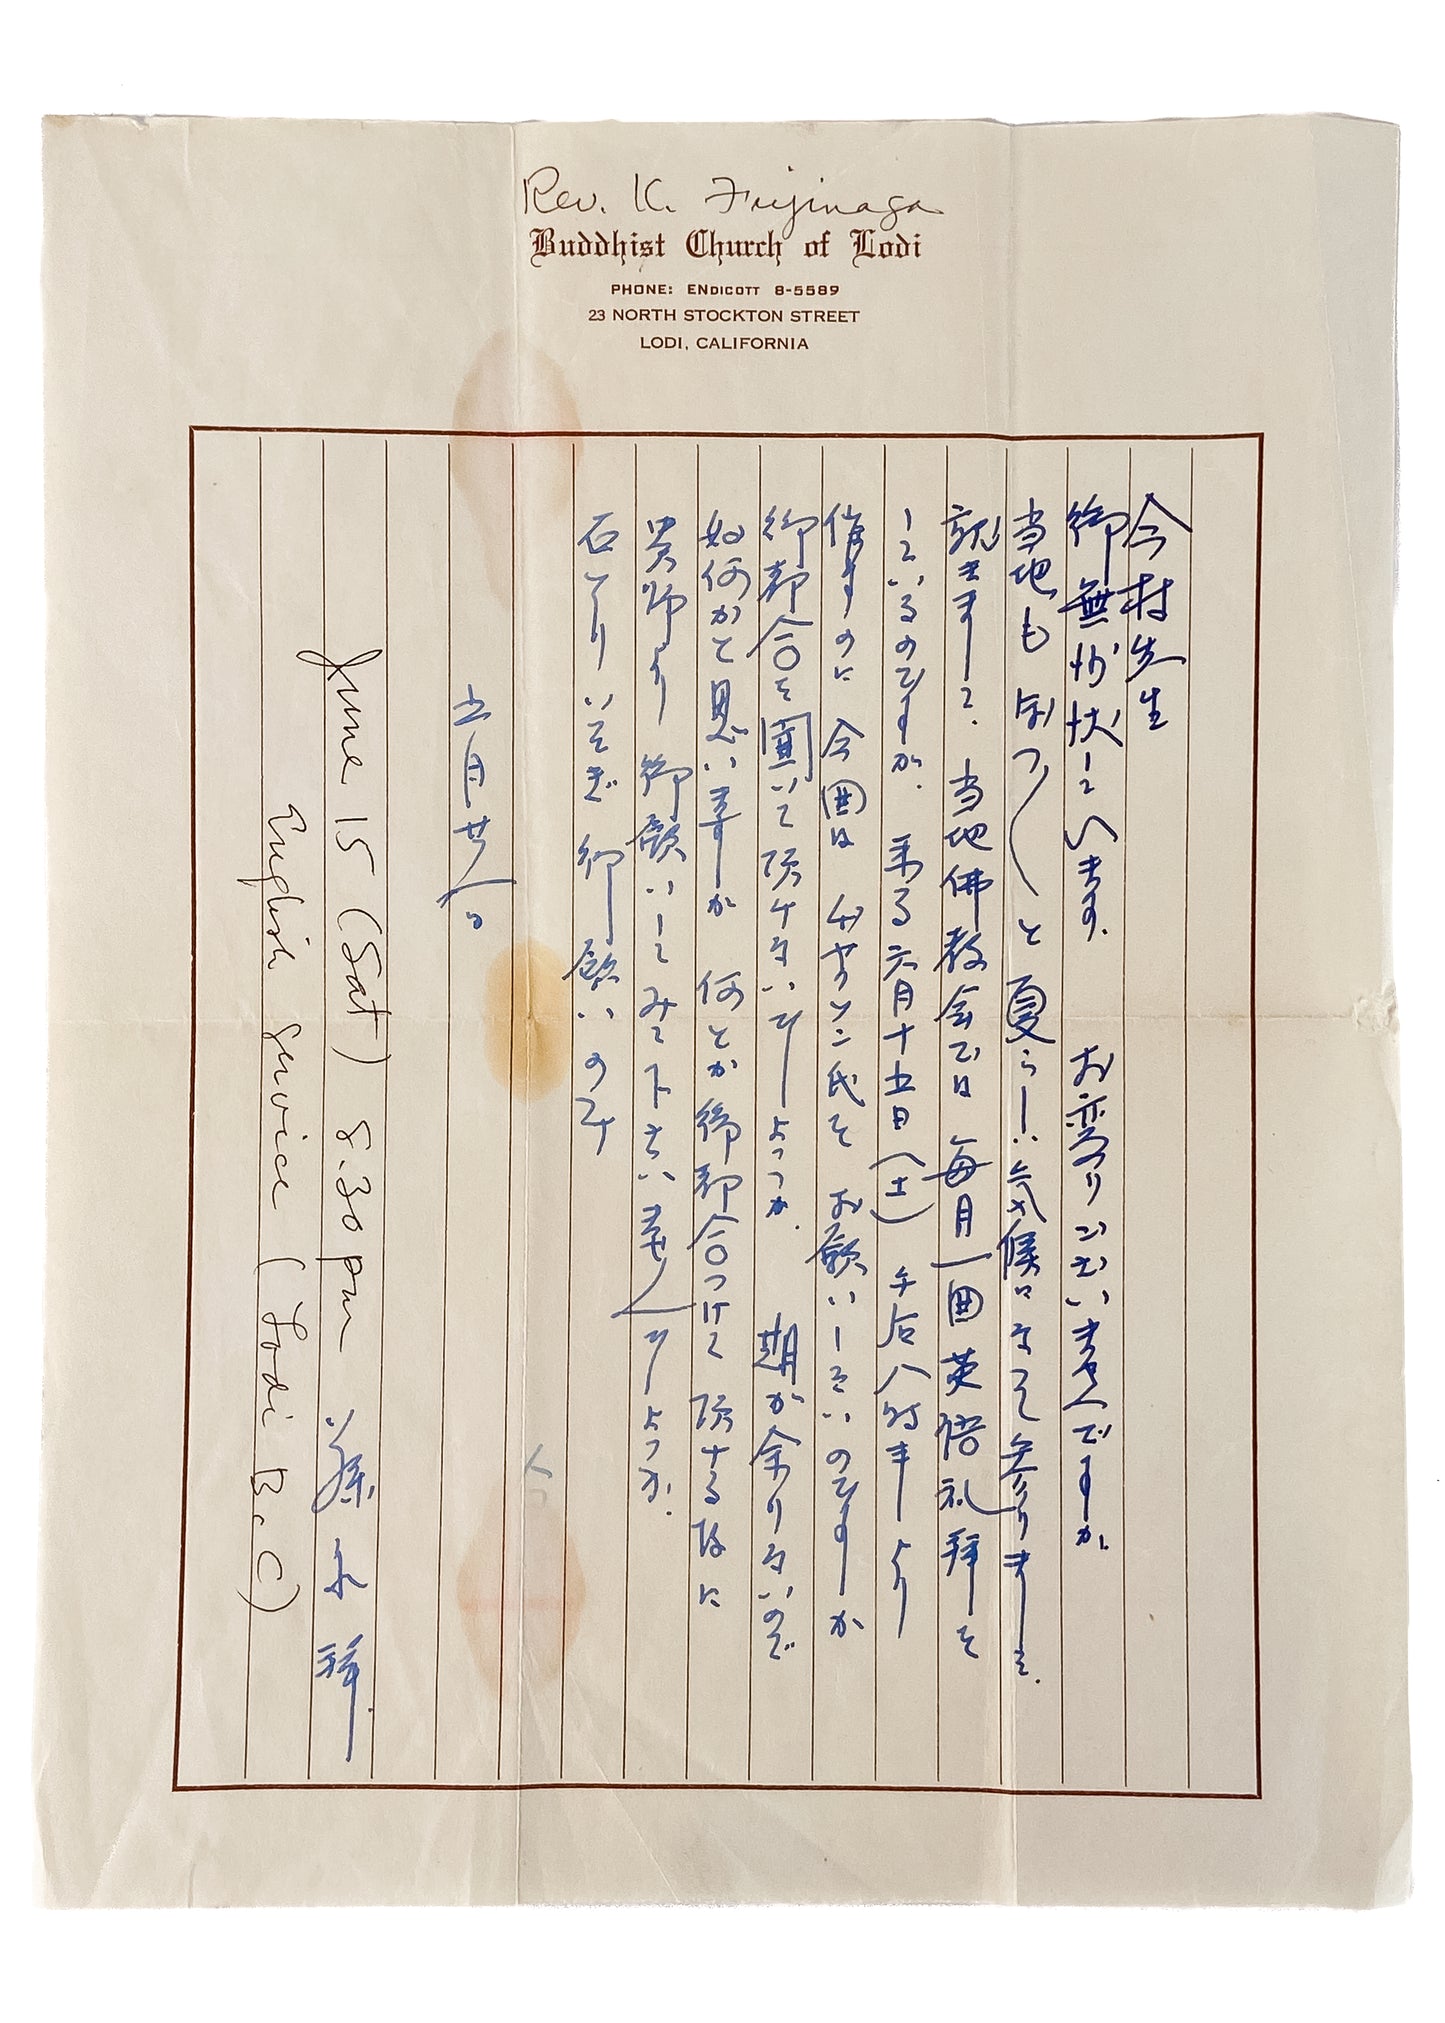 Rev. K. Fujinaga
Buddhist Church of Lodi
PHONE: ENDICOTT 8-5589
23 NORTH STOCKTON STREET
LODI, CALIFORNIA
今村先生
御無沙汰しています。 お変りございませんですか。
当地も と夏らしい気候になって参りました。
就きまして、当地佛教会では毎月一回英語礼拝を
しているのですが、来る六月十五日(土) 午后八時半より
催すのに今回は 氏をお願いしたいのですか
御都合を聞いて頂けないでしようか。 期が余りないので
如何かと思いますが 何とか御都合つけて頂ける様に
貴師より御願いしてみて下さいませんでしようか。
右とりいそぎ御願いのみ
五月廿八日
藤永拝
June 15 (Sat) 8.30 pm
English service (Lodi B.C)